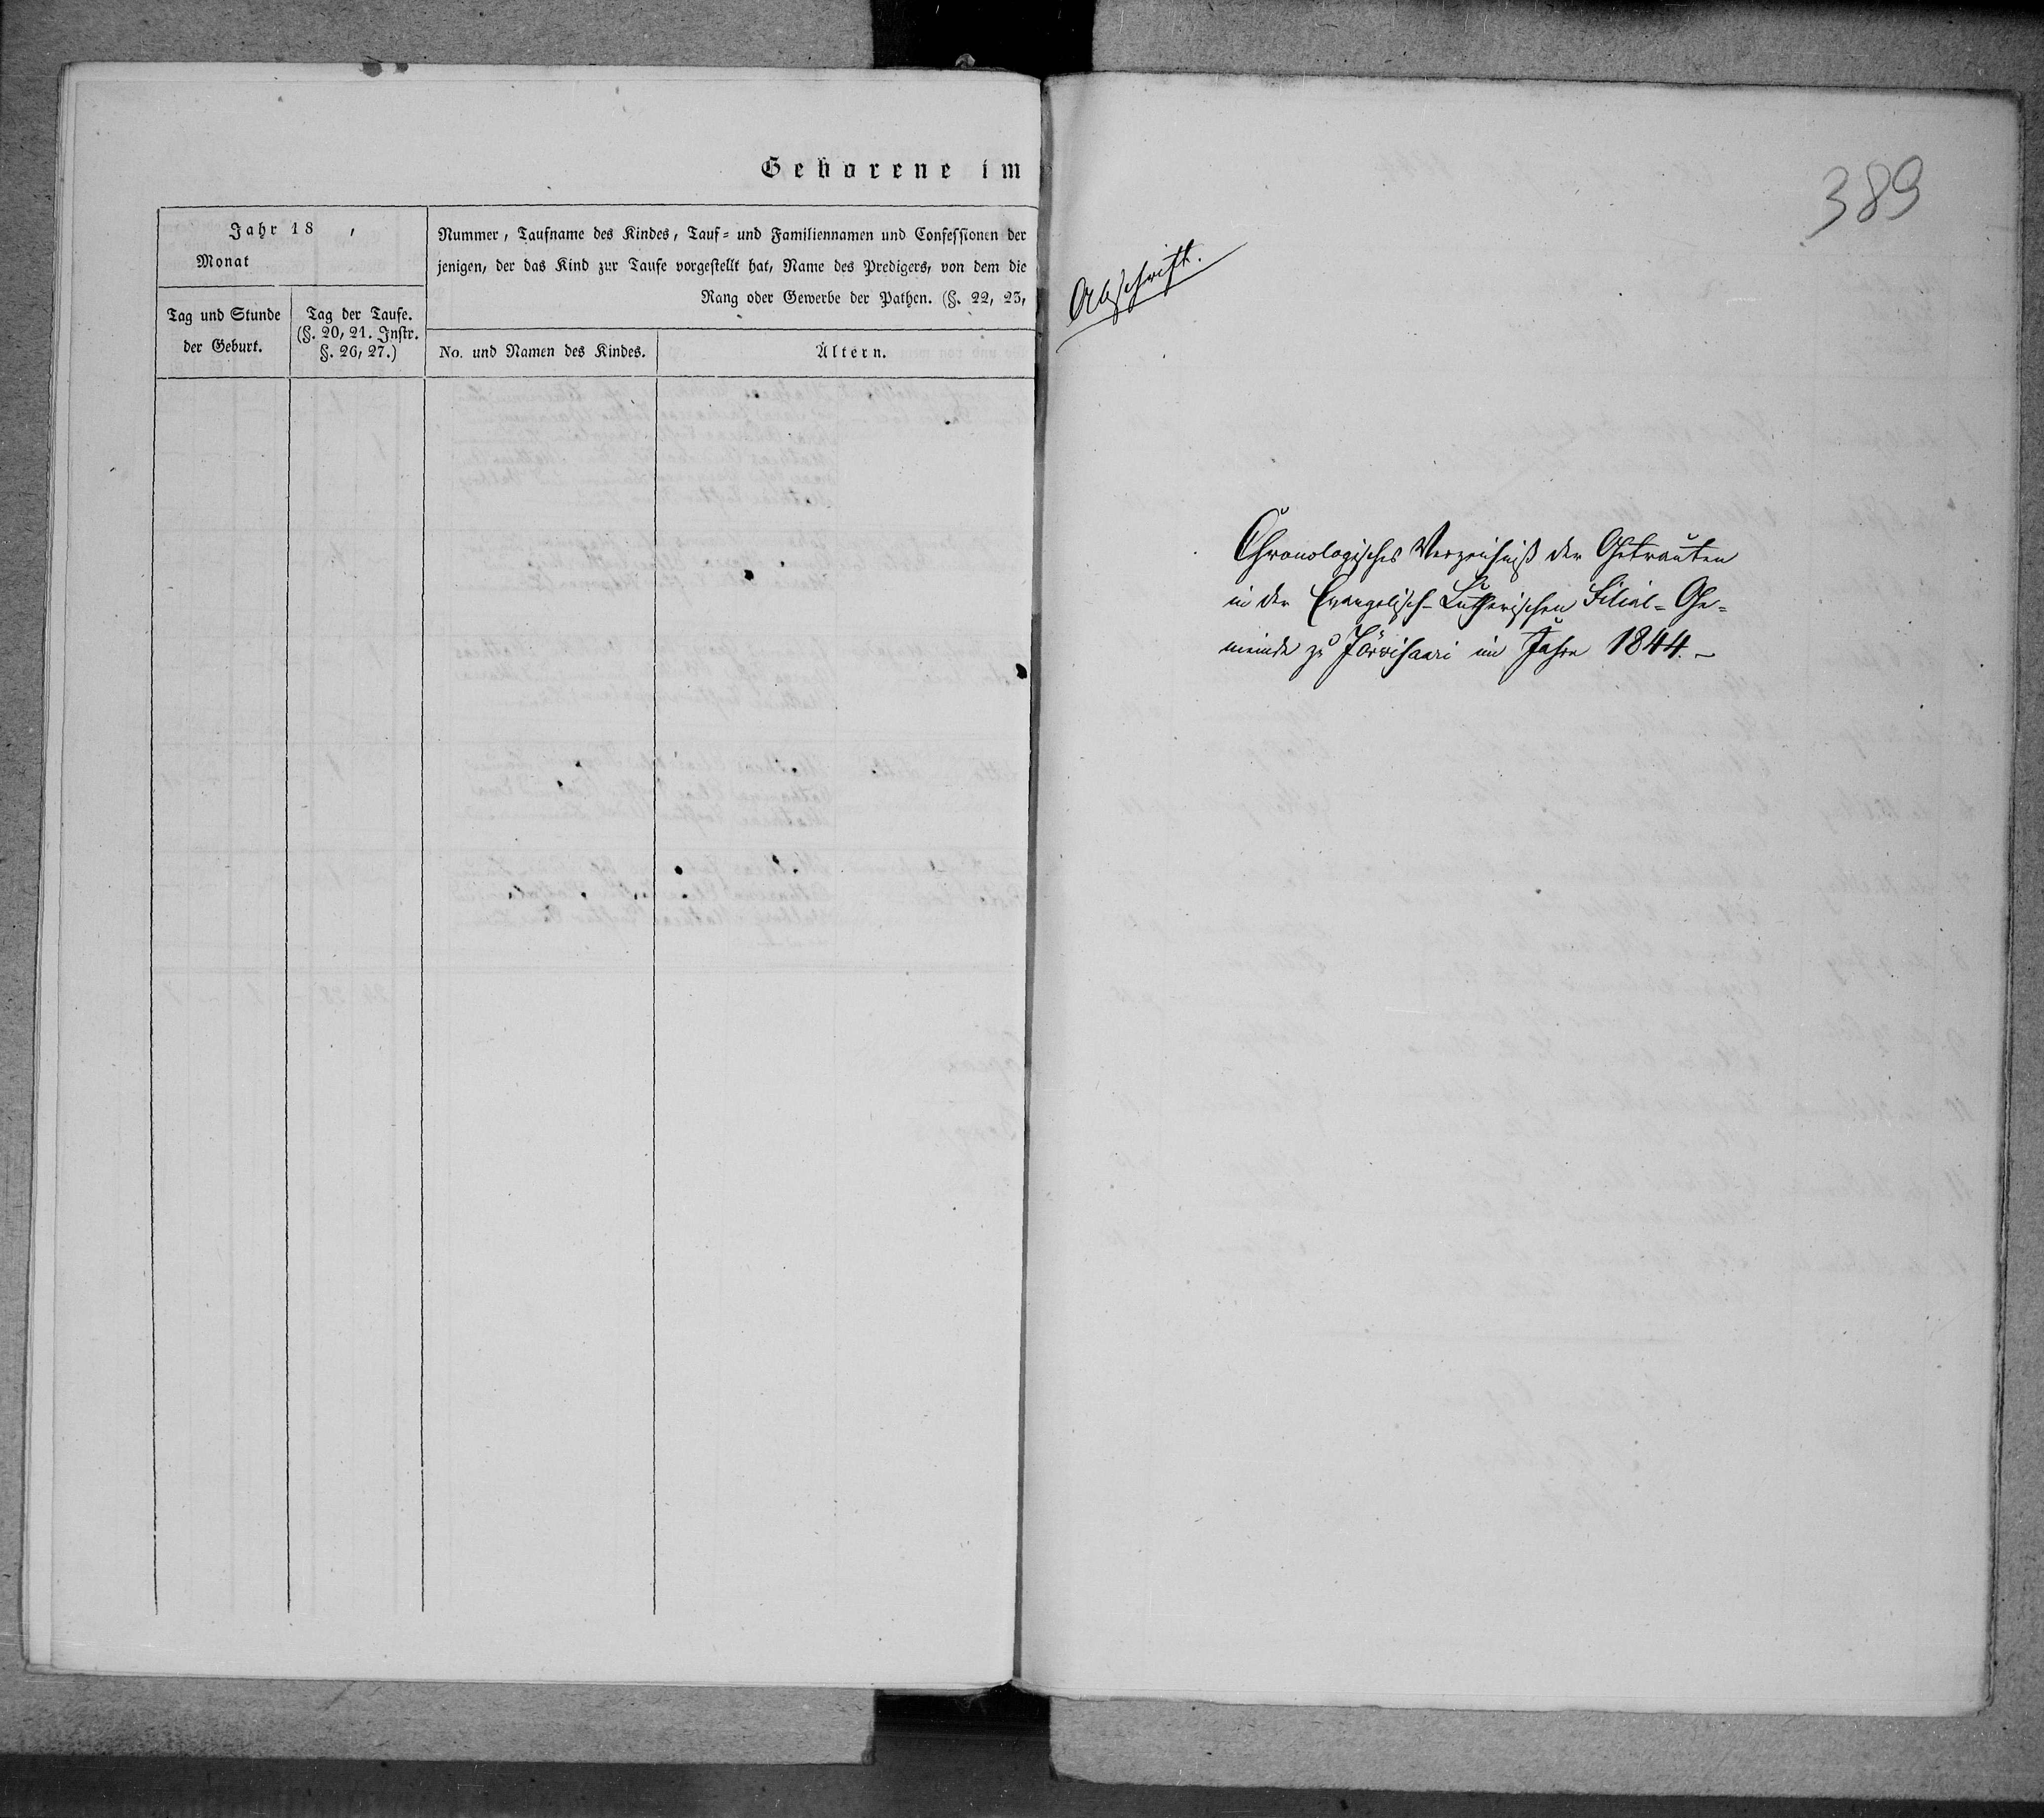 Geborene im
Jahr 18 ,
Monat
Tag und Stunde
der Geburt.
Tag der Taufe.
(§. 20, 21. Instr.
§. 26, 27.)
Nummer, Taufname des Kindes, Tauf- und Familiennamen und Confessionen der
jenigen, der das Kind zur Taufe vorgestellt hat, Name des Predigers, von dem die
Rang oder Gewerbe der Pathen. (§. 22, 23,
No. und Namen des Kindes.
Ältern.
389
Abschrift.
Chronologisches Verzeichniß der Getrauten
in der Evangelisch-Lutherischen Filial-Ge-
meinde zu Järvisaari im Jahre 1844.-